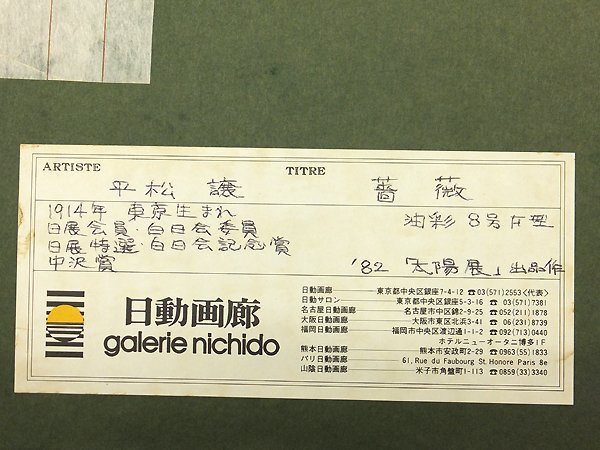 ARTISTE TITRE
平松 譲 薔 薇
1914年 東京生まれ 油彩 8号 F型
日展会員・白日会委員
日展特選・白日会記念賞
中沢賞 '82 「太陽展」出品作
日動画廊
galerie nichido
日動画廊 東京都中央区銀座7-4-12 ☎03(571)2553〈代表〉
日動サロン 東京都中央区銀座5-3-16 ☎03(571)7381
名古屋日動画廊 名古屋市中区錦2-9-25 ☎052(211)1878
大阪日動画廊 大阪市東区北浜3-41 ☎06(231)8739
福岡日動画廊 福岡市中央区渡辺通1-1-2 ☎092(713)0440
ホテルニューオータニ博多1F
熊本日動画廊 熊本市安政町2-29 ☎0963(55)1833
パリ日動画廊 61, Rue du Faubourg St. Honore Paris 8e
山陰日動画廊 米子市角盤町1-113 ☎0859(33)3340